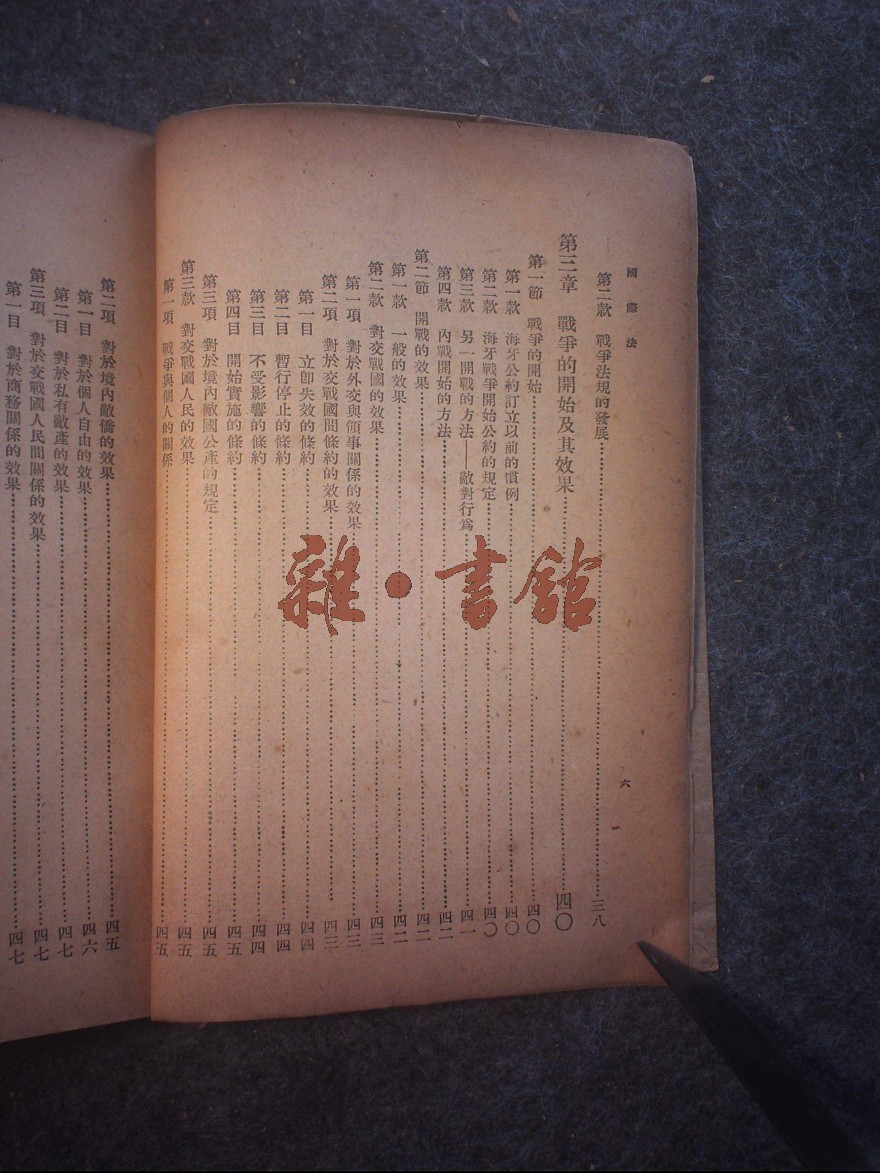 國際法
六
第二款　戰爭法規的發展………三八
第三章　戰爭的開始及其效果………四〇
第一節　戰爭的開始………四〇
第一款　海牙公約訂立以前的慣例………四〇
第二款　海牙戰爭開始公約的規定………四〇
第三款　另一開戰的方法——敵對行爲………四一
第四款　內戰開始的方法………四二
第二節　開戰的效果………四二
第一款　一般的效果………四二
第二款　對交戰國的效果………四三
第一項　對於外交與領事關係的效果………四三
第二項　對於交戰國間條約的效果………四三
第一目　立卽失效的條約………四四
第二目　暫行停止的條約………四四
第三目　不受影響的條約………四四
第四目　開始實施的條約………四五
第三項　對於境內敵國公產的規定………四五
第三款　對交戰國人民的效果………四五
第一項　戰爭與個人的關係………四五
第二項　對於境內敵僑的效果………四五
第一目　對於個人自由的效果………四六
第二目　對於私有敵產的效果………四七
第三項　對於交戰國人民間關係的效果………四七
第一目　對於商務關係的效果………四七
雜·書館